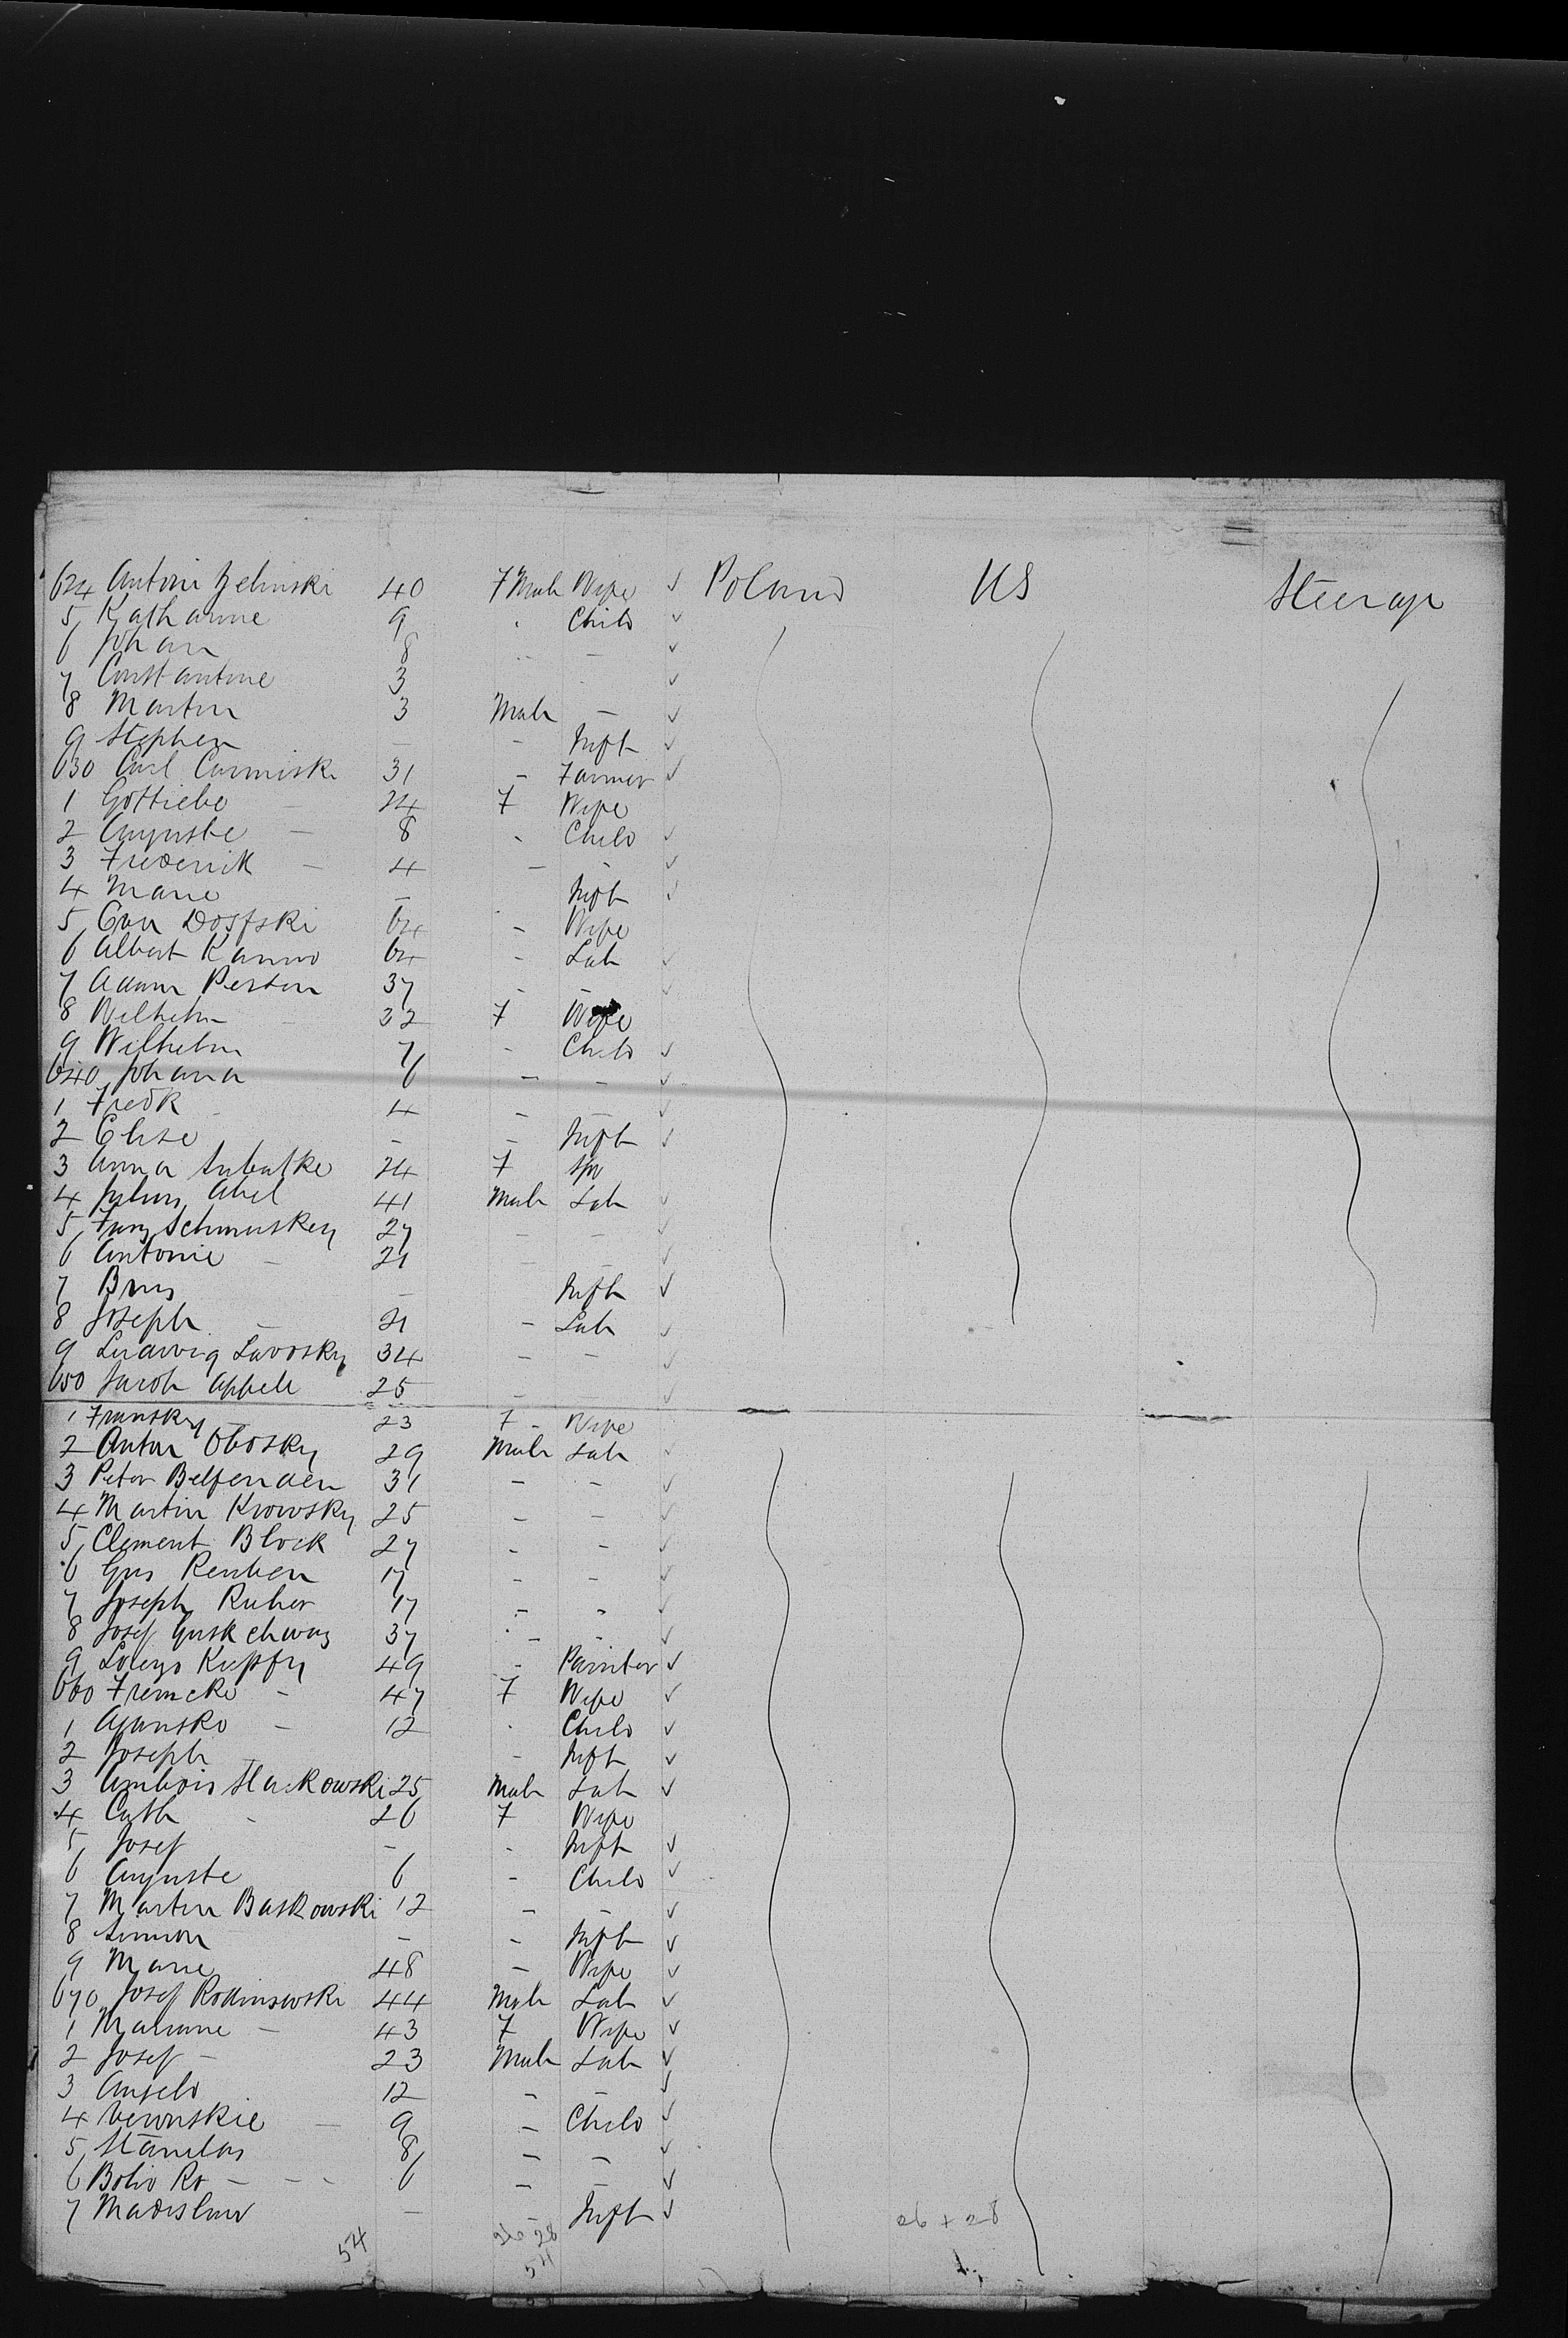 624 Antoni Zelinski 40 F Male Wife ✓ Poland US Steerage
5 Katharine 9 " Child ✓
6 Johan 8 - - ✓
7 Constantine 3 ✓
8 Martin 3 Male - ✓
9 Stephen - - Inft ✓
630 Carl Carmiski 31 - Farmer ✓
1 Gottliebe - 24 F Wife
2 Auguste - 8 " Child ✓
3 Frederick - 4 - - ✓
4 Marie - Inft ✓
5 Eva Dosfski 64 - Wife
6 Albert 64 - Lab ✓
7 Adam Perton 37 - - ✓
8 Wilhelm - 32 F Wife
9 Wilhelm 7 - Child ✓
640 Johana 6 - - ✓
1 Fredk 4 - - ✓
2 Elise - - Inft ✓
3 Anna 24 F Sp
4 Julius Abel 41 Male Lab ✓
5 27 - - ✓
6 Antonie - 21 - ✓
7 - Inft ✓
8 Joseph - 21 - Lab ✓
9 Ludwig Lavosky 34 - - ✓
650 Jacob Appell 25 - ✓
1 Fransky - 23 F - Wife
2 Anton Obosky 29 Male Lab ✓
3 Peter Belfenden 31 - - ✓
4 Martin Krowsky 25 - - ✓
5 Clement Block 27 - - ✓
6 Gus Reuben 17 - - ✓
7 Joseph Ruher 17 - - ✓
8 Josef 37 - - ✓
9 Kupfry 49 - Painter ✓
660 Fremcke - 47 F Wife ✓
1 Ajansko - 12 " Child ✓
2 Joseph - - Inft ✓
3 25 Male Lab ✓
4 Cath - 26 F Wife
5 Josef - - Inft ✓
6 Auguste 6 - Child ✓
7 Martin Baskowski 12 - - ✓
8 Simon - - Inft ✓
9 Marie 48 - Wife ✓
670 Josef Rodinswski 44 Male Lab ✓
1 Marianne - 43 F Wife ✓
2 Josef - 23 Male Lab ✓
3 Anselo 12 - - ✓
4 Veronskie - 9 - Child ✓
5 Stanilas 8 - - ✓
6 Ro - - - 6 - - ✓
7 Madislaw - - Inft ✓
26 28 26 + 28
54 54